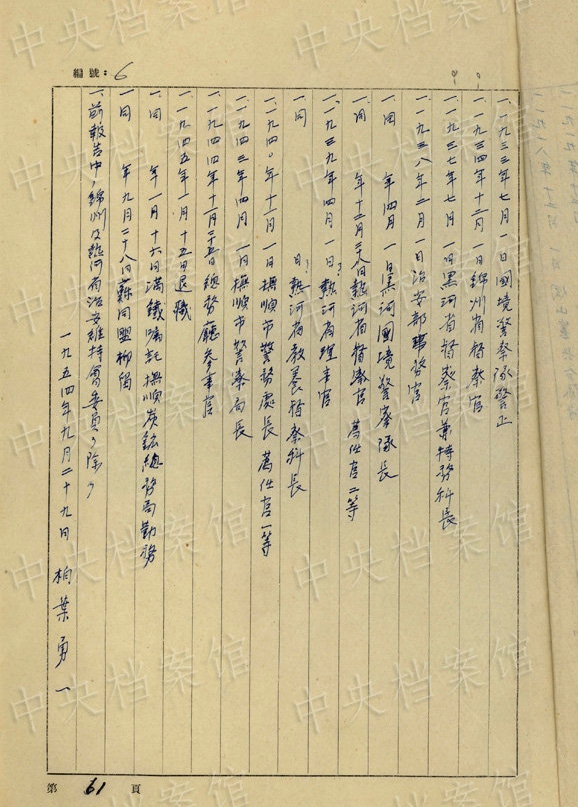 編號：6
一、一九三三年七月一日國境警察隊警正
一、一九三四年十二月一日錦州省督察官
一、一九三七年七月一日黑河省督察官兼特務科長
一、一九三八年二月一日治安部事務官
一、同年四月一日黑河國境警察隊長
一、同年十二月二八日熱河省督察官荐任官二等
一、一九三九年四月一日？熱河省理事官
一、同日？熱河省教養督察科長
一、一九四〇年十一月一日撫順市警務處長荐任官一等
一、一九四三年四月一日撫順市警察局長
一、一九四四年十一月二十五日總務廳參事官
一、一九四五年一月十五日退職
一、同年一月十六日滿鐵囑託撫順炭鉱總務局勤務
一、同年九月二十八日蘇同盟抑留
一、前報告中，錦州及熱河省治安維持會委員，除，
一九五四年九月二十九日 柏葉勇一
第61頁
中央档案馆